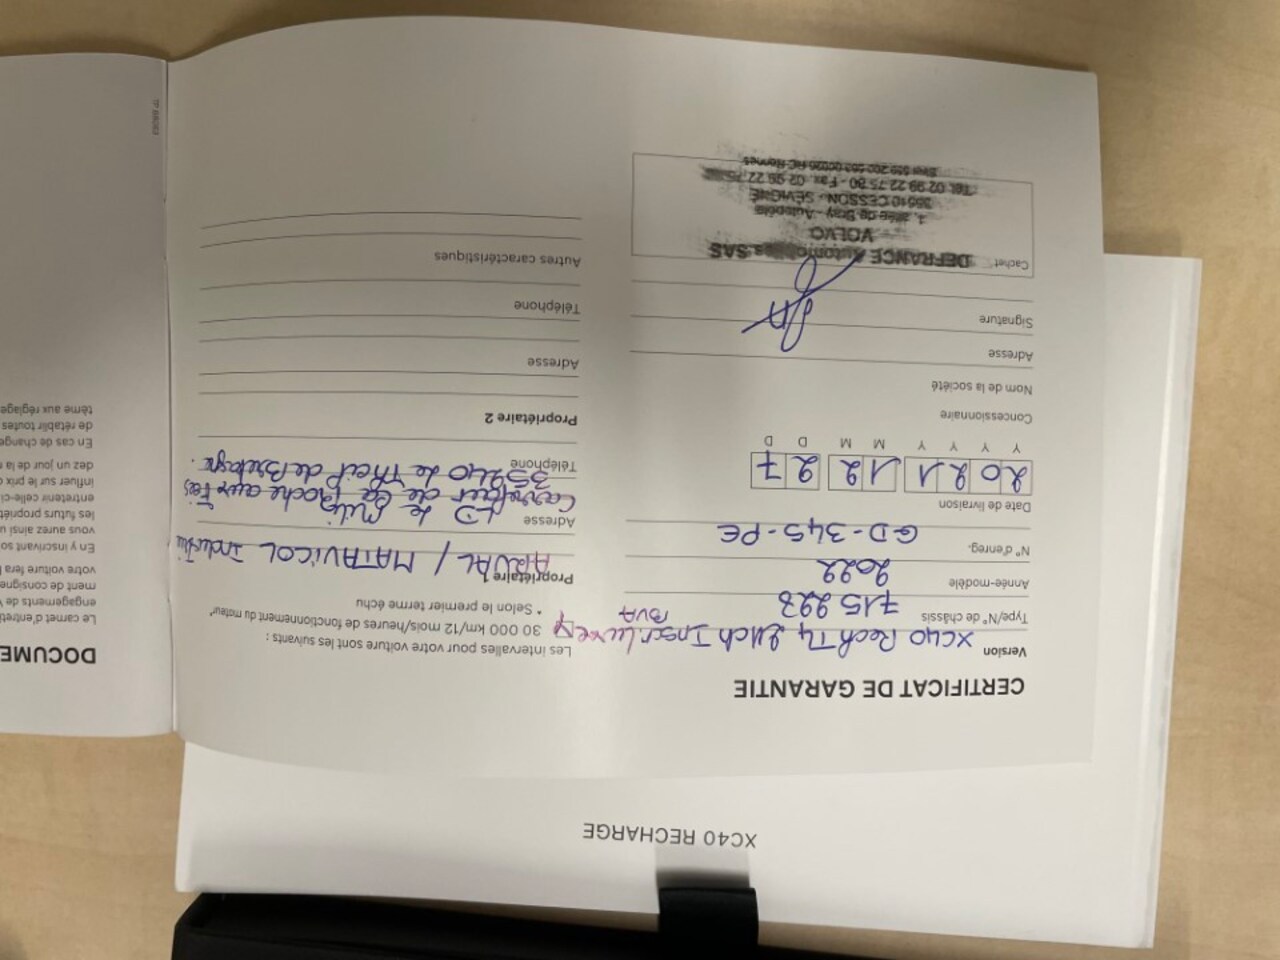 CERTIFICAT DE GARANTIE
Version XC40 Rech T4 211ch Inscr. Luxe
BVA
Type/N° de châssis 715223
Année-modèle 2022
N° d'enreg. GD-345-PE
Date de livraison
2021 12 27
Y Y Y Y M M D D
Concessionnaire
Nom de la société
Adresse
Signature
Cachet
DEFRANCE Automobiles SAS
VOLVO
1, allée de Bray - Autopôle
35510 CESSON - SÉVIGNÉ
Tél. 02 99 22 75 80 - Fax. 02 99 22 75
RC Rennes
Les intervalles pour votre voiture sont les suivants :
30 000 km/12 mois/heures de fonctionnement du moteur*
• Selon le premier terme échu
Propriétaire 1 ARVAL / MATAVICOL Industrie
Adresse LD le
Carrefour de la Roche aux Fées
35240 Le Theil de Bretagne.
Téléphone
Propriétaire 2
Adresse
Téléphone
Autres caractéristiques
DOCUME
Le carnet d'entreti
engagements de V
ment de consigne
votre voiture fera l
En y inscrivant so
vous aurez ainsi u
les futurs propriét
entretenir celle-ci
influer sur le prix d
dez un jour de la
En cas de change
de rétablir toutes
tème aux réglage
XC40 RECHARGE